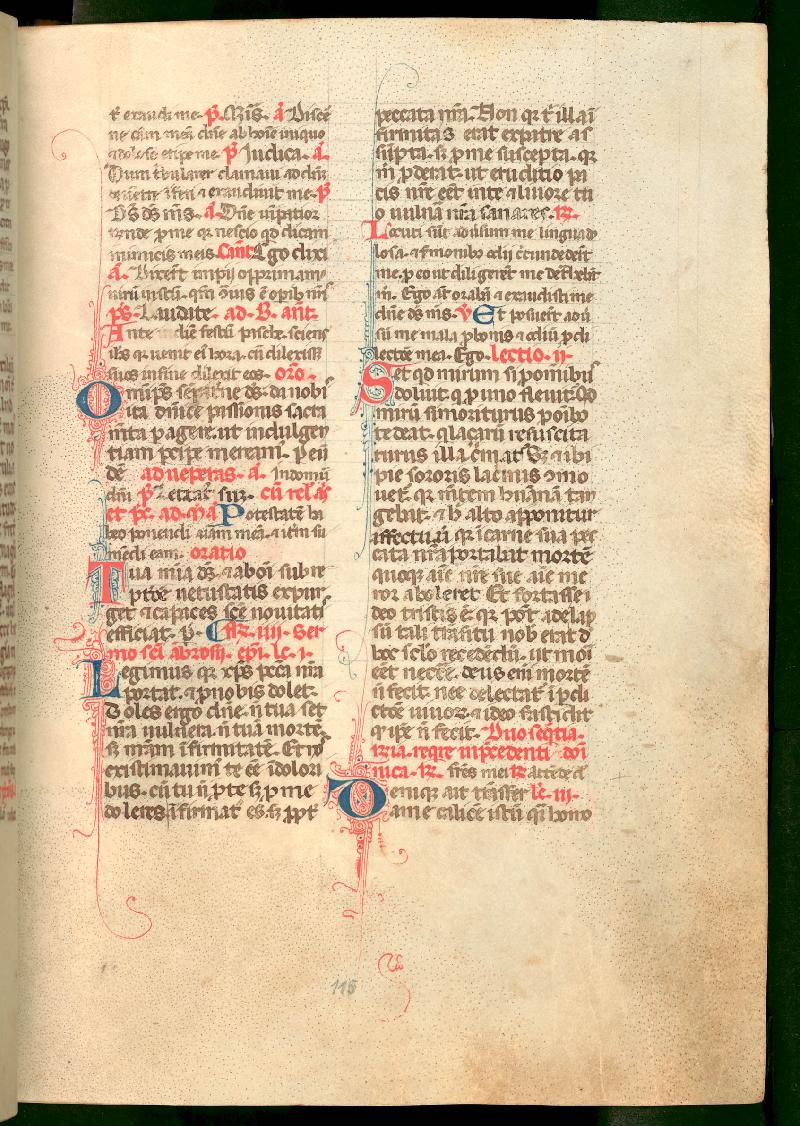 et exaudi me. p. Mis. a Disce
ne cām meā dn̄e ab hoīe iniquo
⁊ doloso eripe me. p Iudica. a.
Dum tribularer clamaui ad dn̄m
de uentre īferi ⁊ exaudiuit me. p
Ds ds ms. a. Dn̄e uim patior
rn̄de pro me qr nescio qd dicam
inimicis meis. Cant Ego dixi
a. Dixerūt impii opprimam⁹
uirū iustū. qm̄ ꝯ̄rius ē opib; nr̄is
ps. Laudate. ad. B. ant.
Ante diē festū pasche. sciens
ihs qr uenit ei⁹ hora. cū dilexiss;
suos in fine dilexit eos. or̄o.
Omīps sempitne ds. da nobis
ita dn̄ice passionis sacra
mēta pagere. ut indulgen
tiam pcipe meream̄. P eū
dē ad uesperas. a. In domū
dn̄i p Letat sū. cū reliqs
et p̄c. ad. ma Potestatē ha
beo ponendi aīam meā. ⁊ itm su
mēdi eam. oratio
Tua mīa ds. ⁊ ab oī subre
ptōe uetustatis expur
get ⁊ capaces scē nouitatis
efficiat. p. feria. iiii. Ser
mo sc̄i ābrosii. ep̄i. le. i.
Legimus qr xp̄s pctā nr̄a
portat. ⁊ p nobis dolet.
Doles ergo dn̄e. n̄ tua set
nr̄a uulnera. n̄ tuā mortē.
s; nr̄am īfirmitatē. Et nos
existimauim̄ te eē ī dolori
bus. cū tu n̄ p te s; p me
doleres īfirmat⁹ es. s; ppt
peccata nr̄a. Non qr t̄ illa ī
firmitas erat ex patre as
sūpta. s; p me suscepta. qr
m̄ pderat. ut eruditio pa
cis nr̄e eēt in te ⁊ liuore tu
o uulnā nr̄a sanares. R.
Locuti sūt aduīsum me lingua do
losa. ⁊ sermonib; odii circūdederūt
me. p eo ut diligerēt me dethebāt
m̄. Ego aūt orabā ⁊ exaudisti me
dn̄e ds ms. V Et posuert aduīs
sū me mala p bonis ⁊ odiū p di
lectōe mea. Ego. lectio. ii.
Set qd mirum si p omnibus
doluit. q p uno fleuit. Qd
mirū si moriturus p oīb
tedeat. q laçarū resuscita
turus illacrimat. S; ⁊ ibi
pie sororis lacmis ꝯmo
uet. qr mētem humanā tan
gebat. ⁊ h alto apponitur
affectu. ut qr ī carne sua pec
cata nr̄a portabat mortē
quoq; aīe nr̄e sue aīe me
ror aboleret. Et fortasse i
deo tristis ē. qr post ade lap
sū tali trāsitu nob erat d
hoc sclo recedēdū. ut mori
eēt necēe. deus eni mortē
n̄ fecit. nec delectat ī pdi
ctōe uiuor ⁊ ideo fastidit
q ipe n̄ fecit. Duo seqtia
rīa. reqre in pcedenti. dn̄i
nica. R. frēs mei R Attende dn̄e
Denique ait trāsfer le. iii.
a me calicē istū. qi homo
115